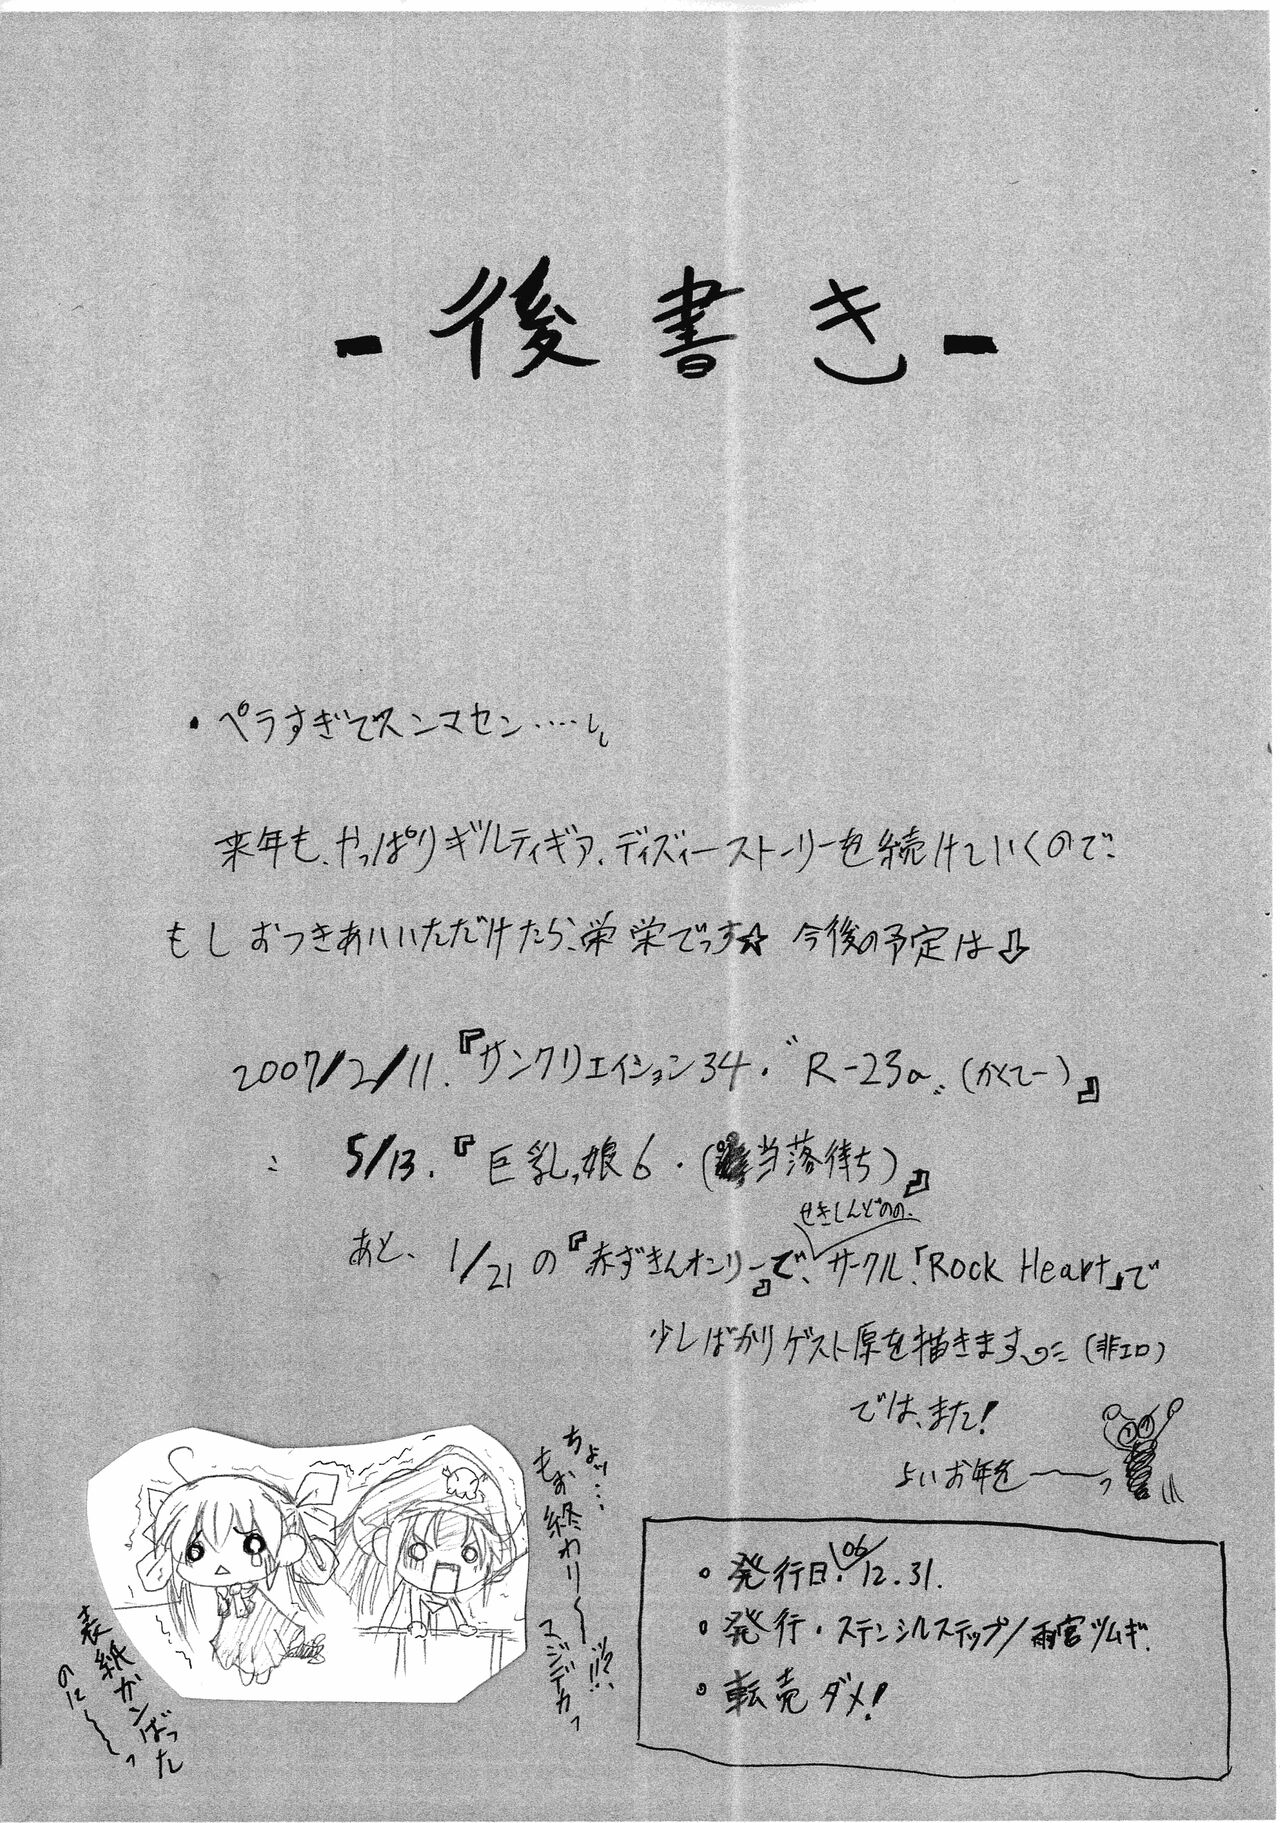 - 後書き -
・ペラすぎてスンマセン・・・・・
来年も、やっぱりギルティギア、ディズィーストーリーを続けていくので、
もしおつきあいいただけたら、栄栄でっす☆ 今後の予定は⇩
2007/2/11.『サンクリエイション34・〝R-23a〟(かくてー)』
〃 5/13.『巨乳っ娘6・(当落待ち)』
せきしんどのの、
あと、1/21の『赤ずきんオンリー』で、サークル「Rock Heart」で
少しばかりゲスト原を描きます (非エロ)
では、また!
よいお年を〜〜っ
ちょッ…
もお終わり〜〜!!?
マジデカっ
表紙ガンばった
のに〜〜っ
・発行日・'06/12.31.
・発行・ステンシルステップ/雨宮ツムギ.
・転売ダメ!